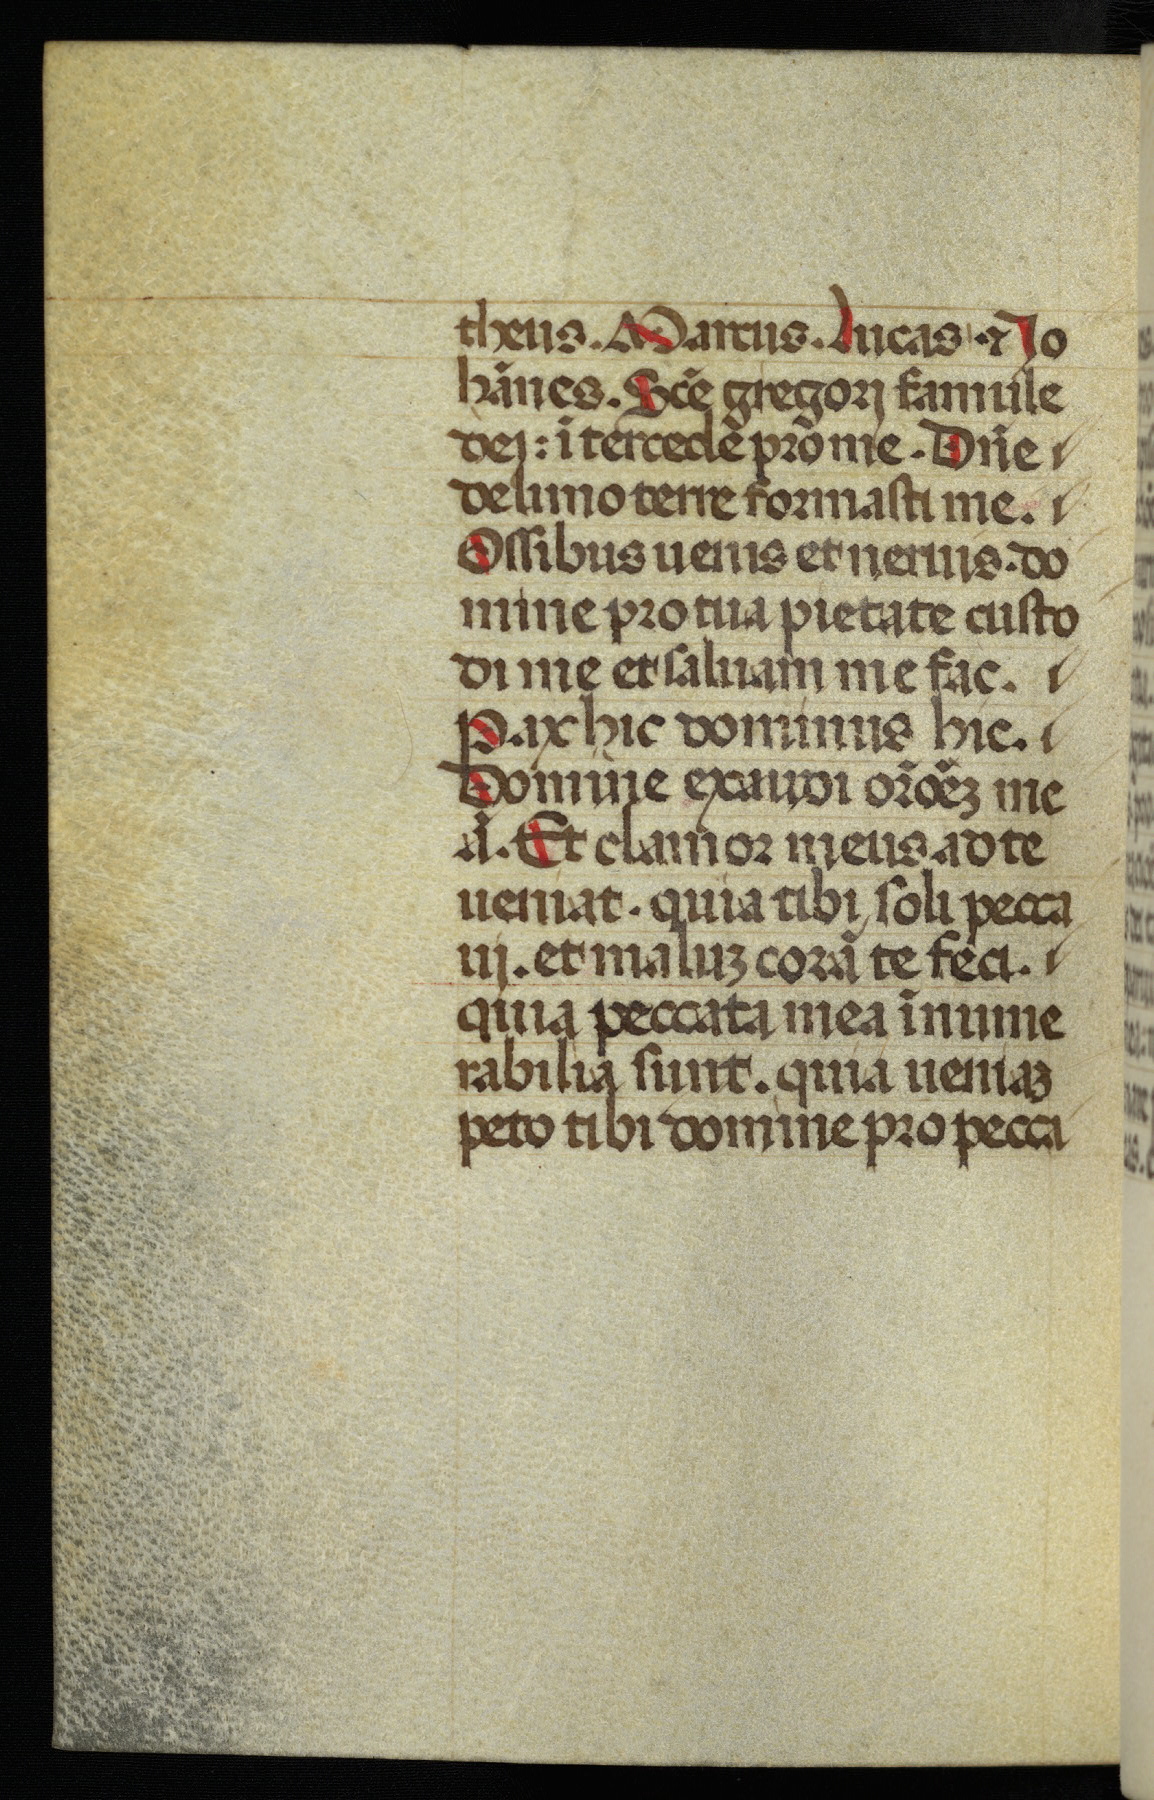 theus. Marcus. Lucas ⁊ Jo
hānes. Sc̄e gregorj famule
dej: ītercedē prōme. Dn̄e
delimo terre formasti me.
Ossibus uenis et neruis. do
mine pro tua pietate custo
di me et saluam me fac.
Pax hic dominus hic.
Domine exaudi or̄oēꝫ me
ā. Et clamor meus adte
ueniat. quia tibi soli pecca
uj. et maluꝫ corā te feci.
quia peccata mea īnume
rabilia sunt. quia ueniaꝫ
peto tibi domine pro pecca